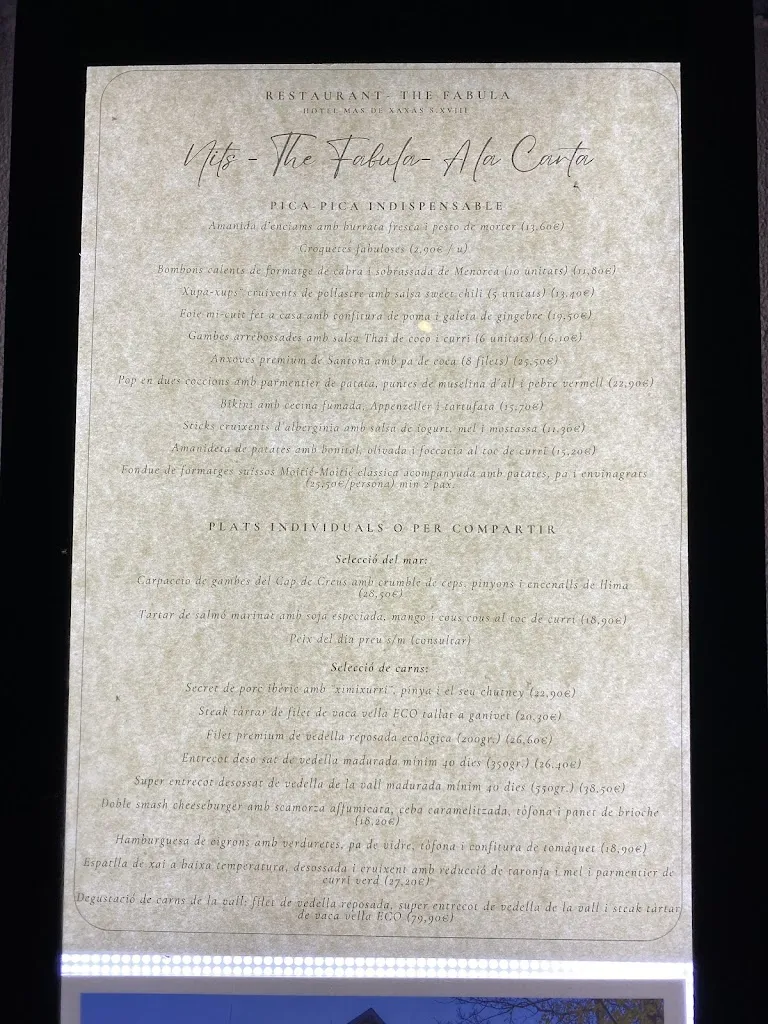 RESTAURANT- THE FABULA
HOTEL MAS DE XAXÀS S.XVIII
Nits - The Fabula- A la Carta
PICA-PICA INDISPENSABLE
Amanida d'enciams amb burrata fresca i pesto de morter (13,60€)
Croquetes fabuloses (2,90€ / u)
Bombons calents de formatge de cabra i sobrassada de Menorca (10 unitats) (11,80€)
"Xupa-xups" cruixents de pollastre amb salsa sweet chili (5 unitats) (13,40€)
Foie mi-cuit fet a casa amb confitura de poma i galeta de gingebre (19,50€)
Gambes arrebossades amb salsa Thai de coco i curri (6 unitats) (16,10€)
Anxoves premium de Santoña amb pa de coca (8 filets) (25,50€)
Pop en dues coccions amb parmentier de patata, puntes de muselina d'all i pebre vermell (22,90€)
Bikini amb cecina fumada, Appenzeller i tartufata (15,70€)
Sticks cruixents d'albergínia amb salsa de iogurt, mel i mostassa (11,30€)
Amanideta de patates amb bonítol, olivada i foccacia al toc de curri (15,20€)
Fondue de formatges suïssos Moitié-Moitié clàssica acompanyada amb patates, pa i envinagrats
(25,50€/persona) min 2 pax.
PLATS INDIVIDUALS O PER COMPARTIR
Selecció del mar:
Carpaccio de gambes del Cap de Creus amb crumble de ceps, pinyons i encenalls de llima
(28,50€)
Tàrtar de salmó marinat amb soja especiada, mango i cous cous al toc de curri (18,90€)
Peix del dia preu s/m (consultar)
Selecció de carns:
Secret de porc ibèric amb "ximixurri", pinya i el seu chutney (22,90€)
Steak tàrtar de filet de vaca vella ECO tallat a ganivet (20,30€)
Filet premium de vedella reposada ecològica (200gr.) (26,60€)
Entrecot deso sat de vedella madurada mínim 40 dies (350gr.) (26,40€)
Super entrecot desossat de vedella de la vall madurada mínim 40 dies (550gr.) (38,50€)
Doble smash cheeseburger amb scamorza affumicata, ceba caramelitzada, tòfona i panet de brioche
(18,20€)
Hamburguesa de cigrons amb verduretes, pa de vidre, tòfona i confitura de tomàquet (18,90€)
Espatlla de xai a baixa temperatura, desossada i cruixent amb reducció de taronja i mel i parmentier de
curri verd (27,20€)
Degustació de carns de la vall: filet de vedella reposada, super entrecot de vedella de la vall i steak tàrtar
de vaca vella ECO (79,90€)